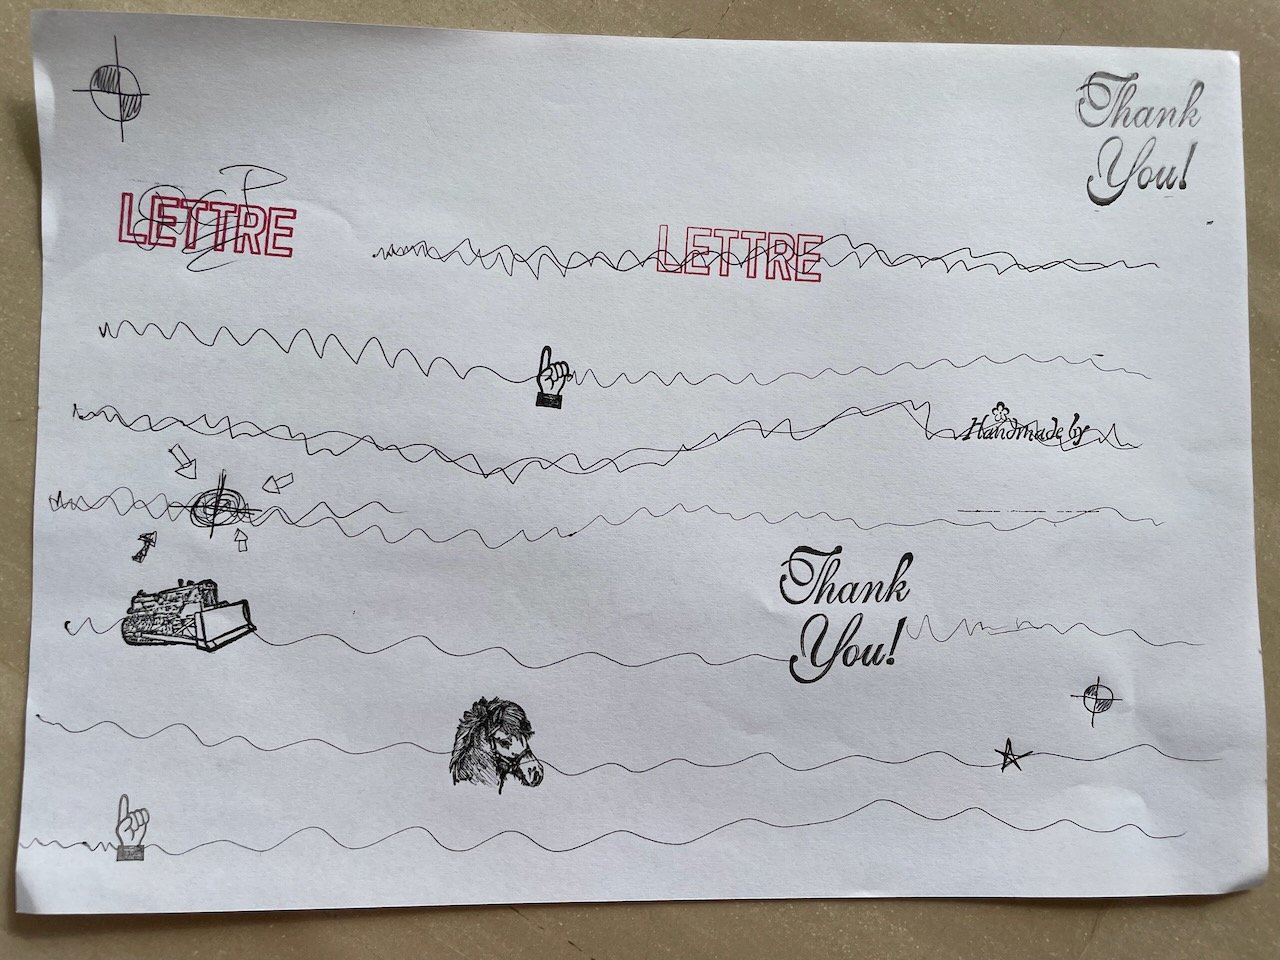 Thank
You!
LETTRE
LETTRE
Handmade by
Thank
You!